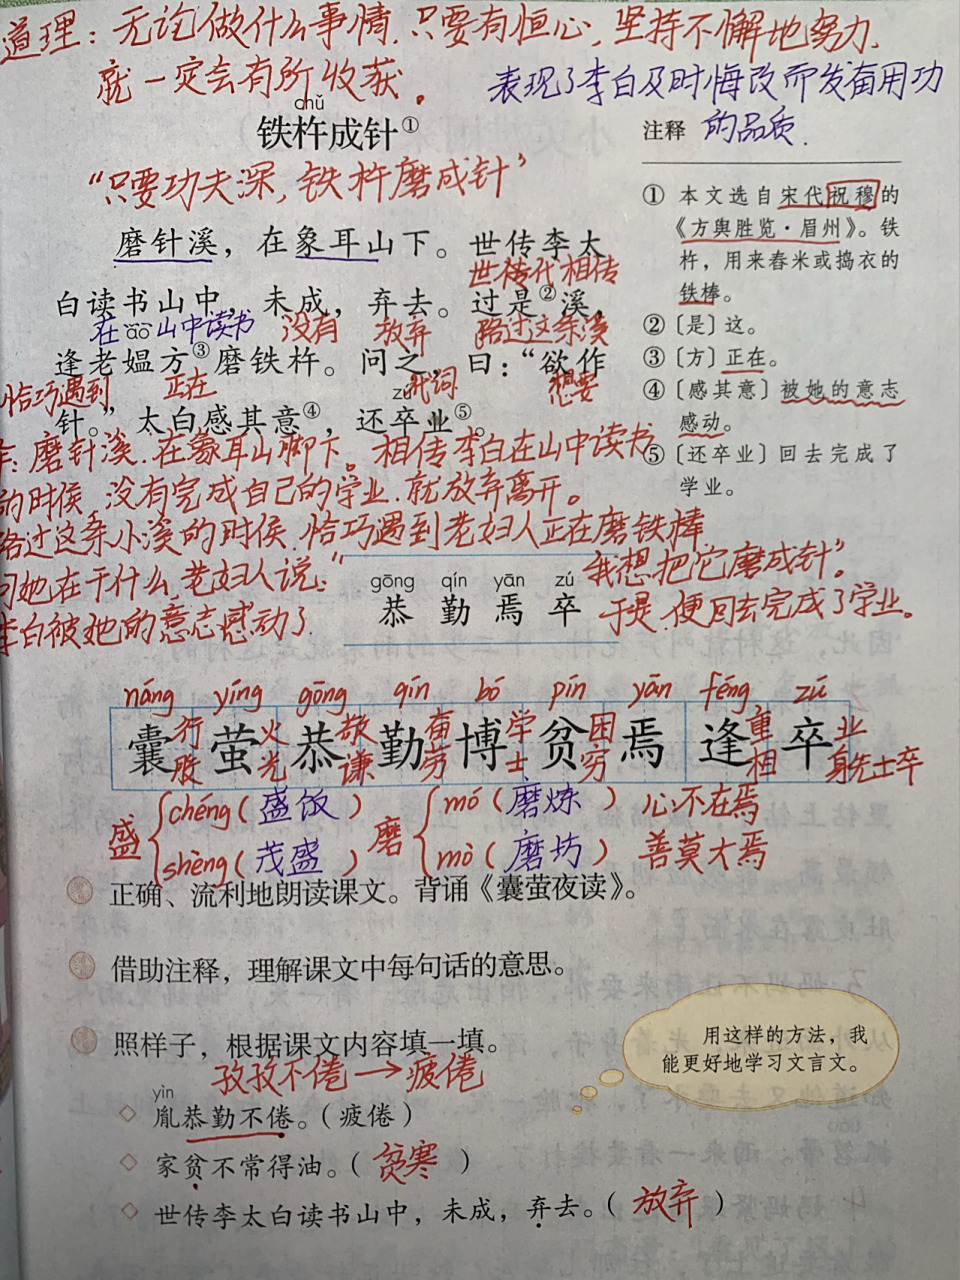 道理：无论做什么事情，只要有恒心，坚持不懈地努力，
就一定会有所收获。
表现了李白及时悔改而发奋用功
的品质.
chǔ
铁杵成针①
“只要功夫深，铁杵磨成针”
磨针溪，在象耳山下。世传李太
世世代代相传
白读书山中，未成，弃去。过是②溪，
在山中读书 没有 放弃 路过这条溪
ǎo
逢老媪方③磨铁杵。问之，曰：“欲作
恰巧遇到 正在 代词 想要
zú
针。”太白感其意④，还卒业⑤。
注释
① 本文选自宋代祝穆的
《方舆胜览·眉州》。铁
杵，用来舂米或捣衣的
铁棒。
②〔是〕这。
③〔方〕正在。
④〔感其意〕被她的意志
感动。
⑤〔还卒业〕回去完成了
学业。
：磨针溪.在象耳山脚下。相传李白在山中读书
的时候，没有完成自己的学业.就放弃离开。
路过这条小溪的时候.恰巧遇到老妇人正在磨铁棒
问她在干什么,老妇人说：“我想把它磨成针”。
李白被她的意志感动了 于是.便回去完成了学业。
gōng qín yān zú
恭 勤 焉 卒
náng yíng gōng qín bó pín yān féng zú
囊 萤 恭 勤 博 贫 焉 逢 卒
行 火 敬 奋 学 困 重 业
光 谦 劳 士 穷 相 身先士卒
盛 chéng（盛饭） 磨 mó（磨炼） 心不在焉
shèng（茂盛） mò（磨坊） 善莫大焉
正确、流利地朗读课文。背诵《囊萤夜读》。
借助注释，理解课文中每句话的意思。
照样子，根据课文内容填一填。
孜孜不倦→疲倦
yìn
胤恭勤不倦。（疲倦）
家贫不常得油。（贫寒）
世传李太白读书山中，未成，弃去。（放弃）
用这样的方法，我
能更好地学习文言文。